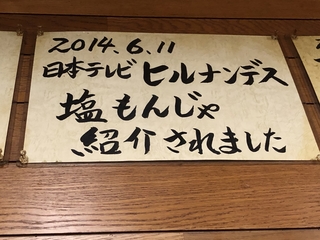 2014.6.11
日本テレビ ヒルナンデス
塩もんじゃ
紹介されました